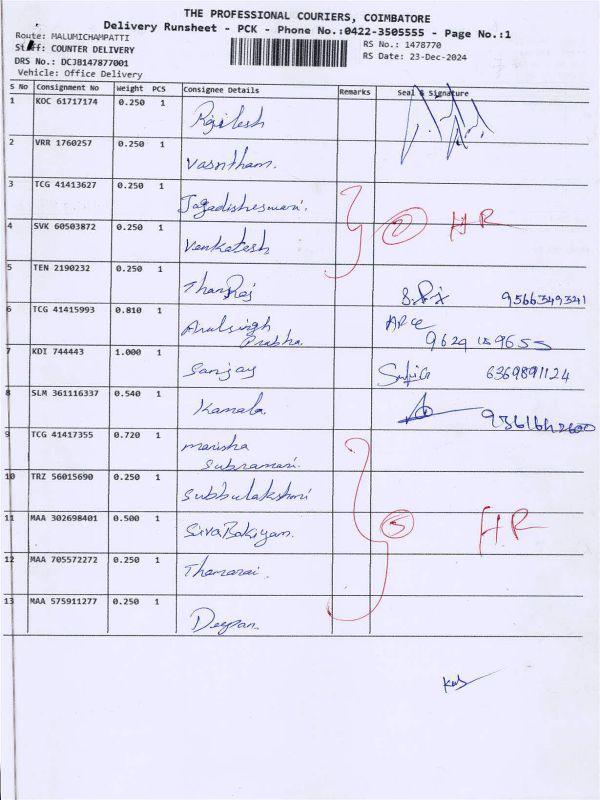 THE PROFESSIONAL COURIERS, COIMBATORE
Delivery Runsheet - PCK - Phone No.:0422-3505555 - Page No.:1
Route: MALUMICHAMPATTI
RS No.: 1478770
Staff: COUNTER DELIVERY
RS Date: 23-Dec-2024
DRS No.: DCJB147877001
Vehicle: Office Delivery
S No Consignment No Weight PCS Consignee Details Remarks Seal & Signature
1 KOC 61717174 0.250 1 Rajilesh
2 VRR 1760257 0.250 1 Vasntham.
3 TCG 41413627 0.250 1 Jagadisheswari.
4 SVK 60503872 0.250 1 Venkatesh
2 HR
5 TEN 2190232 0.250 1 ThangRaj 9566349341
6 TCG 41415993 0.810 1 Arulsingh
Prabha.
7 KDI 744443 1.000 1 Sanjay 6369891124
8 SLM 361116337 0.540 1 Kamala.
9 TCG 41417355 0.720 1 Manisha
Subramani.
10 TRZ 56015690 0.250 1 Subbulakshmi
11 MAA 302698401 0.500 1 SivaBakiyam.
5 HR
12 MAA 705572272 0.250 1 Thamarai.
13 MAA 575911277 0.250 1 Deepan.